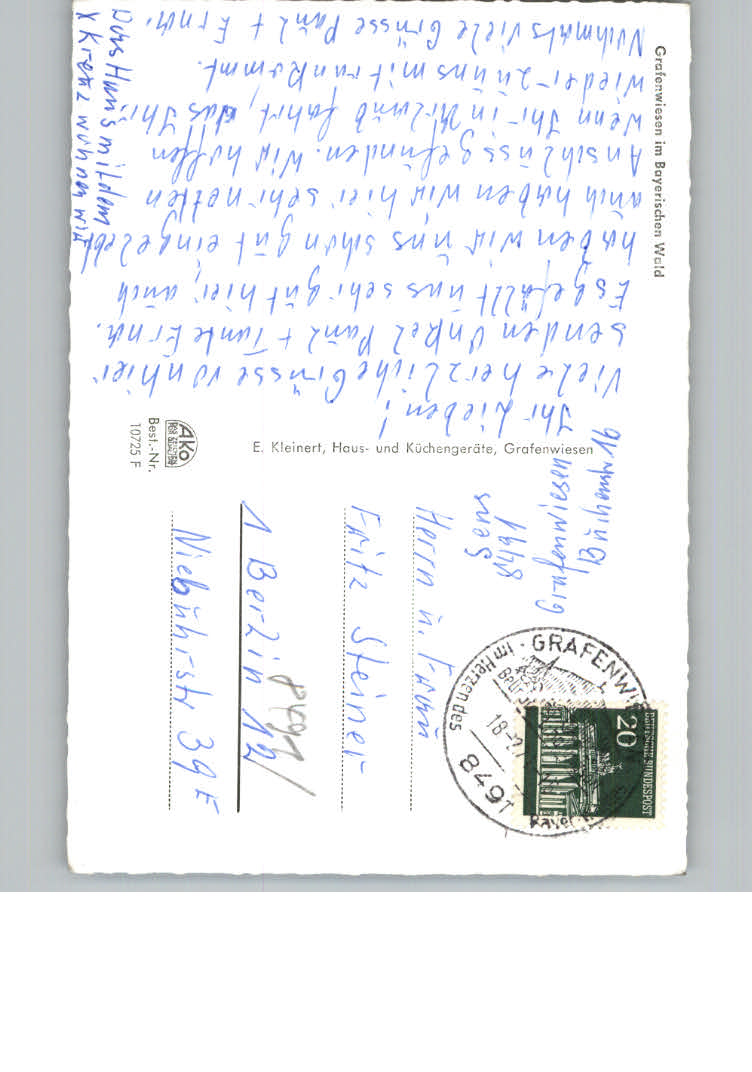 Grafenwiesen im Bayerischen Wald
Ihr Lieben!
Viele herzliche Grüsse von hier
senden Onkel Paul + Tante Erna.
Es gefällt uns sehr gut hier, auch
haben wir uns schon gut eingelebt
auch haben wir hier sehr netten
Anschluss gefunden. Wir hoffen
wenn Ihr in Urlaub fahrt, das Ihr
wieder zu uns mit rankommt.
Nochmals viele Grüsse Paul + Erna.
Das Haus mit dem
X Kreuz wohnen wir
E. Kleinert, Haus- und Küchengeräte, Grafenwiesen
Ako
Best.-Nr.
10725 F
Grafenwiesen
8491
Herrn u. Frau
Fritz Steiner
1 Berlin 12
Niebuhrstr 39 E
GRAFENWIE
im Herzen des
8491
18.
20
DEUTSCHE BUNDESPOST